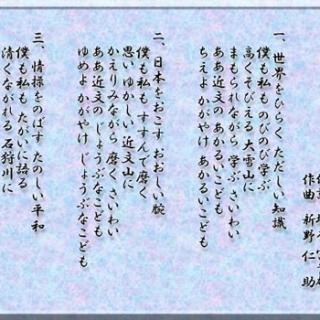 作曲 新野 仁 助
一、世界をひらく ただしい 知識
僕も私も のびのび学ぶ
高くそびえる 大雪山に
まもられながら 学ぶ さいわい
ああ近文の あかるいこども
ちえよ かがやけ あかるいこども
二、日本をおこす おおしい 腕
僕も私も すすんで磨く
思い ゆかしい 近文山に
かえりみながら 磨く さいわい
ああ近文の じょうぶなこども
ゆめよ かがやけ じょうぶなこども
三、情操をのばす たのしい 平和
僕も私も たがいに語る
清くながれる 石狩川に